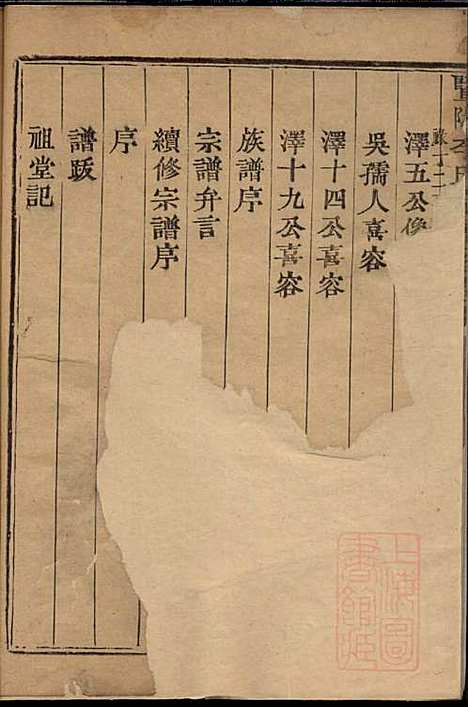 暨陽李氏
澤五公像
吳孺人喜容
澤十四公喜容
澤十九公喜容
族譜序
宗譜弁言
續修宗譜序
序
譜跋
祖堂記
上海圖書館藏